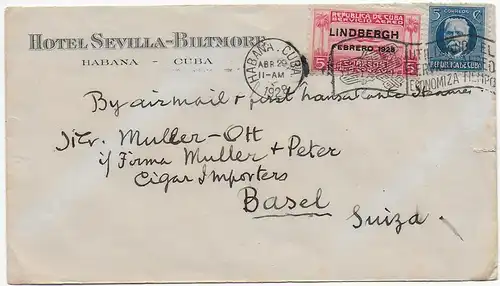 HOTEL SEVILLA-BILTMORE
HABANA - CUBA
REPUBLICA DE CUBA
LINDBERGH
FEBRERO 1928
5
CORREOS
5 C
REPUBLICA DE CUBA
HABANA, CUBA
ABR
11-AM
1928
ECONOMIZA TIEMPO
By airmail & first transatlantic steamer
Müller-Ott
i/ Firma Müller & Peter
Cigar Importers
Basel
Suiza.